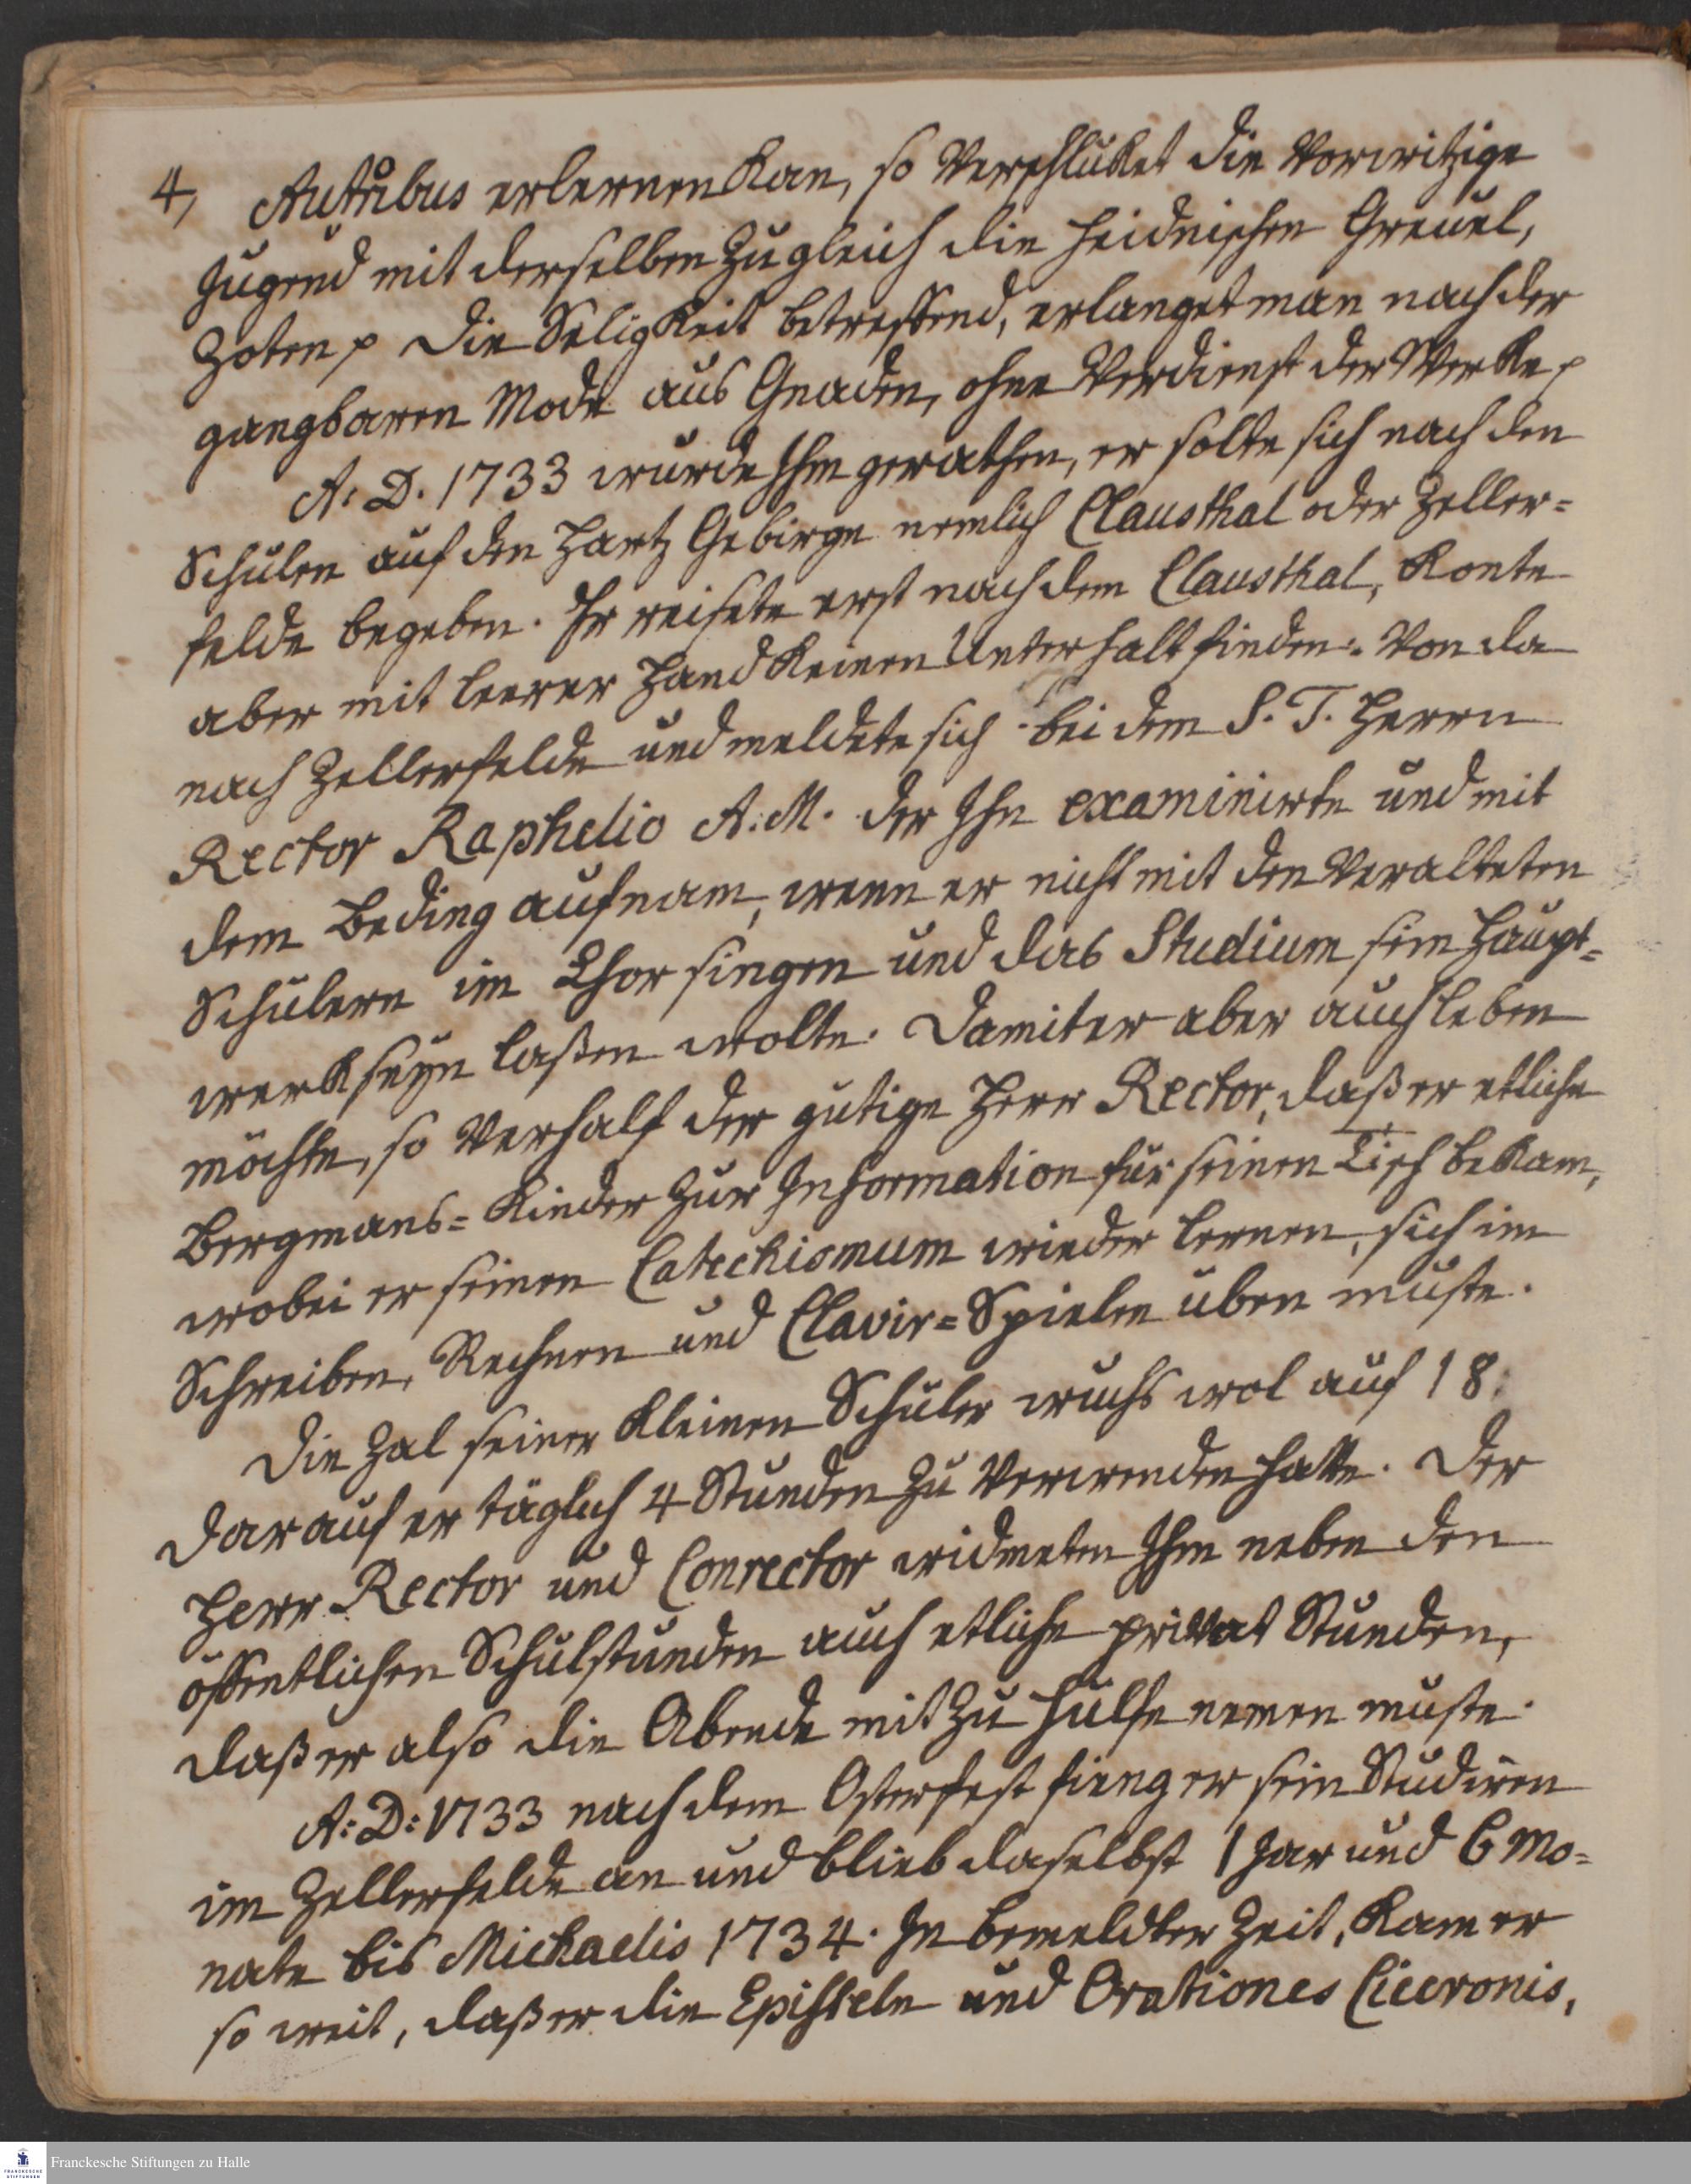 4, Autoribus erlernen kan, so verschluket die vorwitzige
Jugend mit derselben zugleich die heidnischen Greuel,
Zoten p Die Seligkeit betreffend, erlanget man nach der
gangbaren Mode aus Gnaden, ohne Verdienst der Werke p
A: D. 1733 wurde Ihm gerathen, er solte sich nach den
Schulen auf den Hartz Gebirge nemlich Clausthal oder Zeller=
felde begeben. Er reisete erst nach dem Clausthal, konte
aber mit leerer Hand keinen Unterhalt finden. Von da
nach Zellerfelde und meldete sich bei dem S. T. Herrn
Rector Raphelio A. M. der Ihn examinirte und mit
dem Beding aufnam, wenn er nicht mit den veralteten
Schülern im Chor singen und das Studium sein Haupt=
werk seyn laßen wolte. Damit er aber auch leben
möchte, so verhalf der gütige Herr Rector, daß er etliche
Bergmans=Kinder zur Information für seinen Tisch bekam,
wobei er seinen Catechismum wieder lernen, sich im
Schreiben, Rechnen und Clavir=Spielen üben muste.
Die Zal seiner kleinen Schüler wuchs wol auf 18.
darauf er täglich 4 Stunden zu verwenden hatte. Der
Herr Rector und Conrector widmeten Ihm neben den
öffentlichen Schulstunden auch etliche privat Stunden,
daß er also die Abende mit zu Hülfe nemen muste.
A: D: 1733 nach dem Osterfest fieng er sein Studiren
im Zellerfelde an und blieb daselbst 1 Jar und 6 Mo=
nate bis Michaelis 1734. In bemeldter Zeit, kam er
so weit, daß er die Episteln und Orationes Ciceronis,
Franckesche Stiftungen zu Halle
FRANCKESCHE
STIFTUNGEN